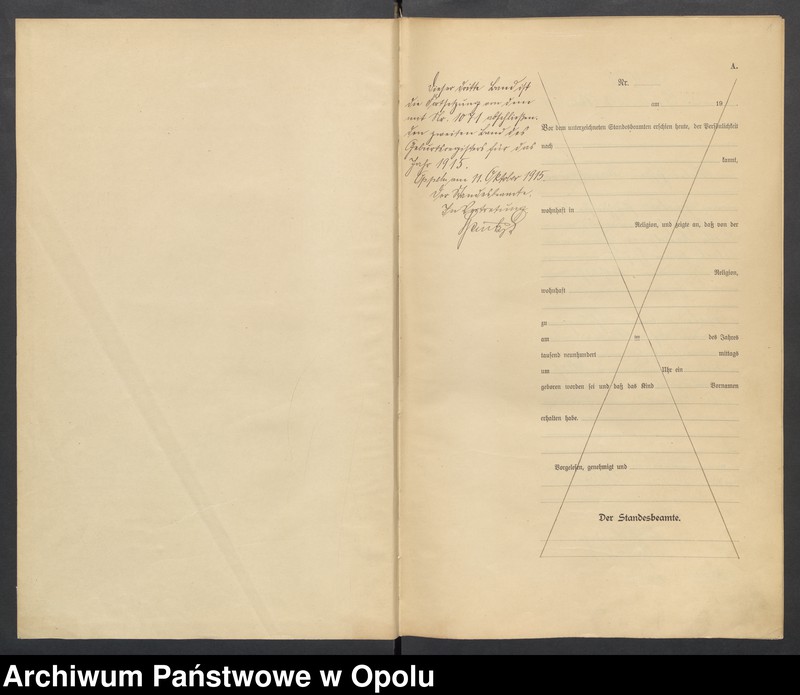 Dieser dritte Band ist
die Fortsetzung von dem
mit Nr. 1091 abschließen-
den zweiten Band des
Geburtsregisters für das
Jahr 1915.
Oppeln, am 11. Oktober 1915
Der Standesbeamte.
In Vertretung
A.
Nr.
am 19
Vor dem unterzeichneten Standesbeamten erschien heute, der Persönlichkeit
nach
kannt,
wohnhaft in
Religion, und zeigte an, daß von der
Religion,
wohnhaft
zu
am ten des Jahres
tausend neunhundert mittags
um Uhr ein
geboren worden sei und daß das Kind Vornamen
erhalten habe.
Vorgelesen, genehmigt und
Der Standesbeamte.
Archiwum Państwowe w Opolu